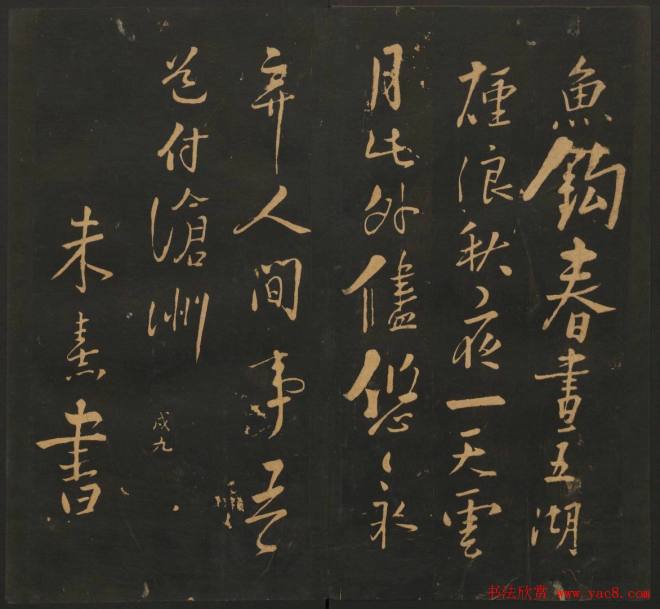 魚鈎春晝五湖
煙浪秋夜一天雲
月此外儘悠〻永
弃人間事吾
道付滄洲
戌九
朱熹書
书法欣赏 www.yac8.com